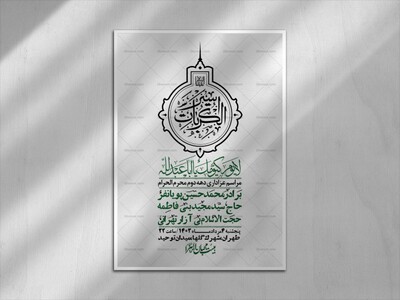 اسیر الکربات
لایوم کیومک یا اباعبدالله
مراسم عزاداری دهه دوم محرم الحرام
برادر محمد حسین پویانفر
حاج سید مجید بنی فاطمه
حجت الاسلام بی آزار تهرانی
پنجشنبه ۴ مرداد ماه ۱۴۰۳ ساعت ۲۲
طهران شهرک گلها میدان توحید